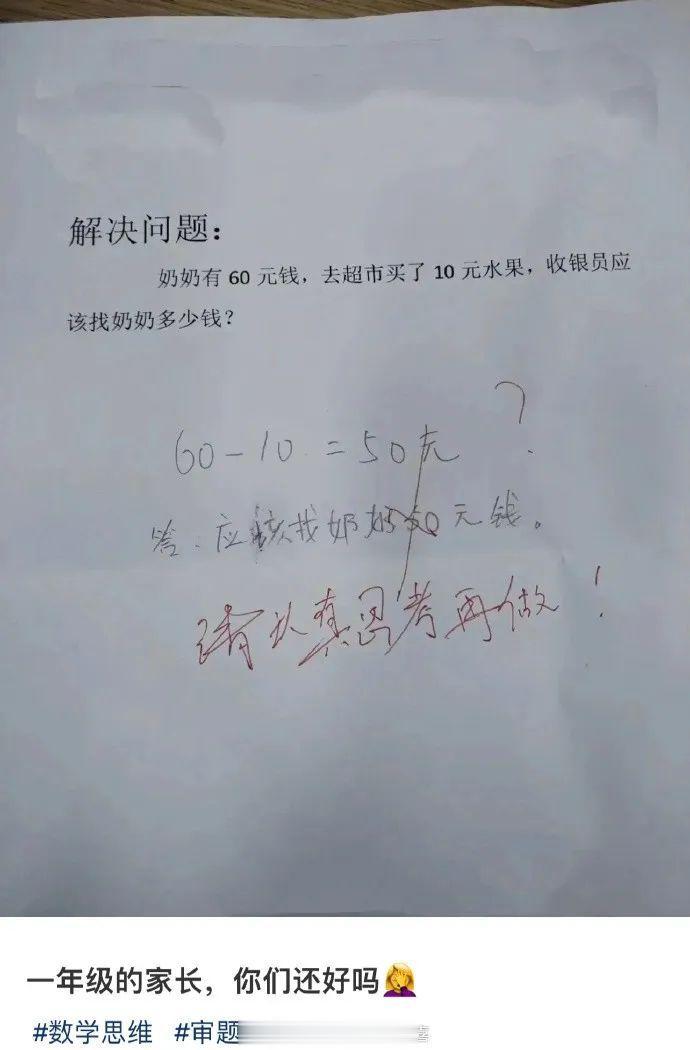 解决问题：
奶奶有 60 元钱，去超市买了 10 元水果，收银员应
该找奶奶多少钱？
?
60-10=50元
答：应该找奶奶50元钱。
请认真思考再做！
一年级的家长，你们还好吗🤦‍♀️
#数学思维 #审题